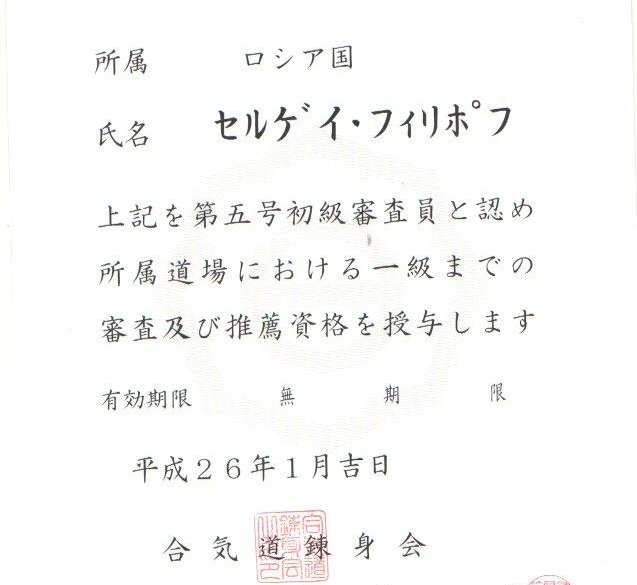 所属 ロシア国
氏名 セルゲイ・フィリポフ
上記を第五号初級審査員と認め
所属道場における一級までの
審査及び推薦資格を授与します
有効期限 無期限
平成26年1月吉日
合気道錬身会